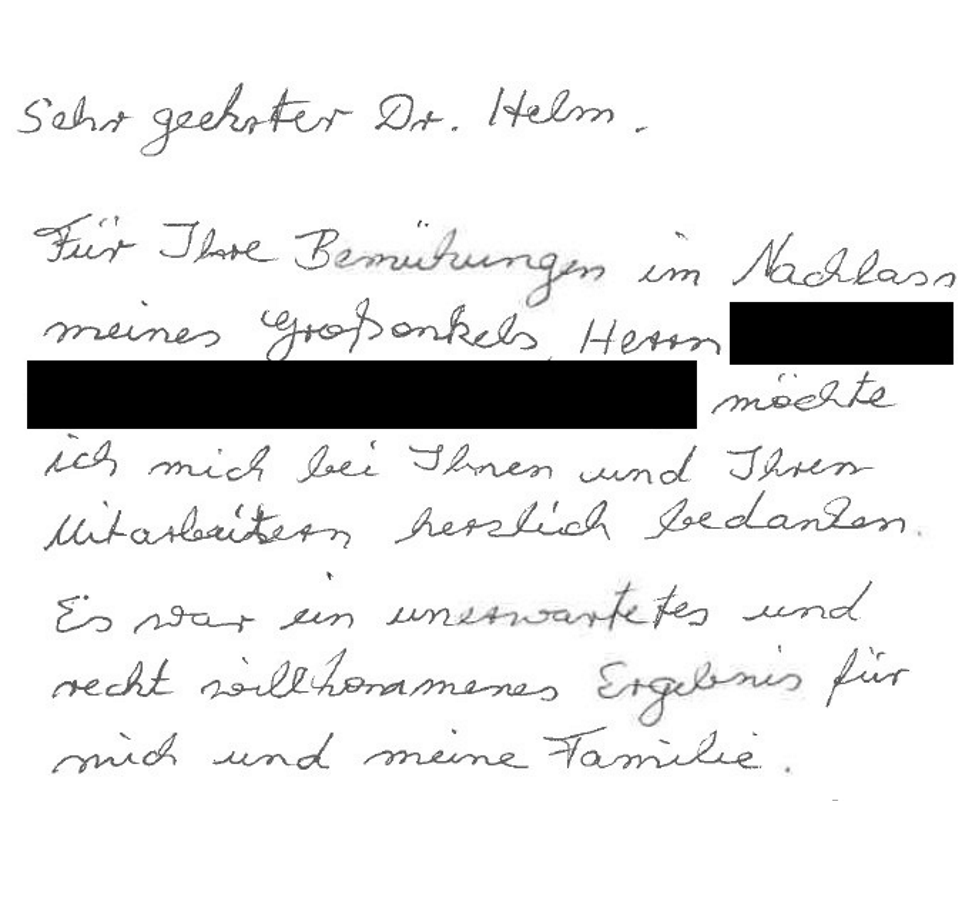 Sehr geehrter Dr. Helm.
Für Ihre Bemühungen im Nachlass
meines Großonkels, Herrn
möchte
ich mich bei Ihnen und Ihren
Mitarbeitern herzlich bedanken.
Es war ein unerwartetes und
recht willkommenes Ergebnis für
mich und meine Familie.